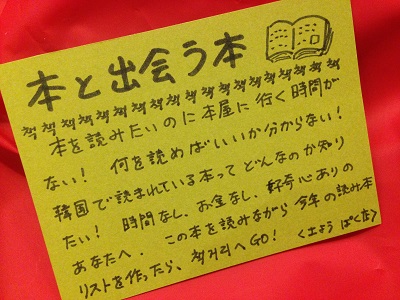 本と出会う本
책책책책책책책책책책책책책책책책
本を読みたいのに本屋に行く時間が
ない! 何を読めばいいか分からない!
韓国で読まれている本ってどんなのか知り
たい! 時間なし、お金なし、好奇心ありの
あなたへ. この本を読みながら今年の読み本
リストを作ったら、책거리へGO! 〈土よう ぱく店〉